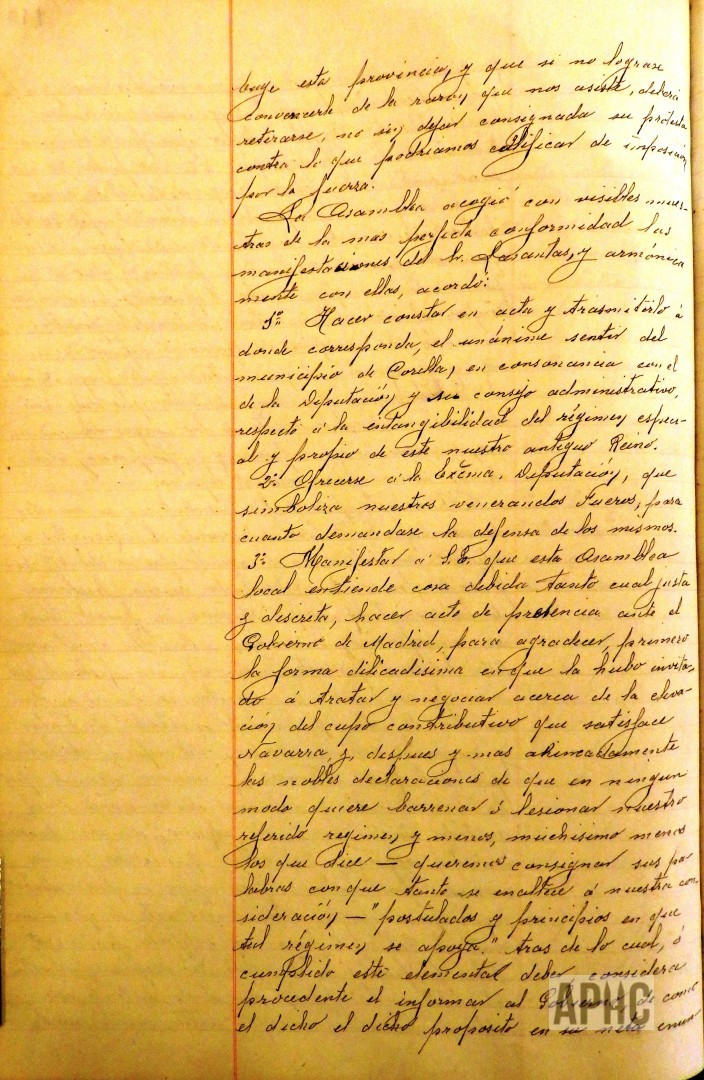 buye esta provincia, y que si no lograse
convencerle de la razon que nos asiste, deberá
retirarse, no sin dejar consignada su protesta
contra lo que podriamos calificar de imposición
por la fuerza.
La Asamblea acogió con visibles mues-
tras de la mas perfecta conformidad las
manifestaciones del Sr. Lasantas, y armónica
mente con ellas, acordó:
1º Hacer constar en acta y trasmitirlo á
donde corresponda, el unánime sentir del
municipio de Corella, en consonancia con el
de la Diputación y su consejo administrativo,
respecto á la intangibilidad del régimen especi-
al y propio de este nuestro antiguo Reino.
2º Ofrecerse á la Excma. Diputación, que
simboliza nuestros venerandos Fueros, para
cuanto demandase la defensa de los mismos.
3º Manifestar á S.E. que esta Asamblea
local entiende cosa debida tanto cual justa
y discreta, hacer acto de presencia ante el
Gobierno de Madrid, para agradecer, primero
la forma dilicadisima en que la hubo invita-
do á tratar y negociar acerca de la eleva-
ción del cupo contributivo que satisface
Navarra, y, despues y mas ahincadamente
las nobles declaraciones de que en ningun
modo quiere barrenar ó lesionar nuestro
referido regimen y menos, muchisimo menos
los que dice — queremos consignar sus pa-
labras con que tanto se enaltece á nuestra con-
sideración, — "postulados y principios en que
tal régimen se apoya." tras de lo cual, ó
cumplido este elemental deber considera
procedente el informar al Gobierno, de como
el dicho el dicho proposito en su neta enun
APHC